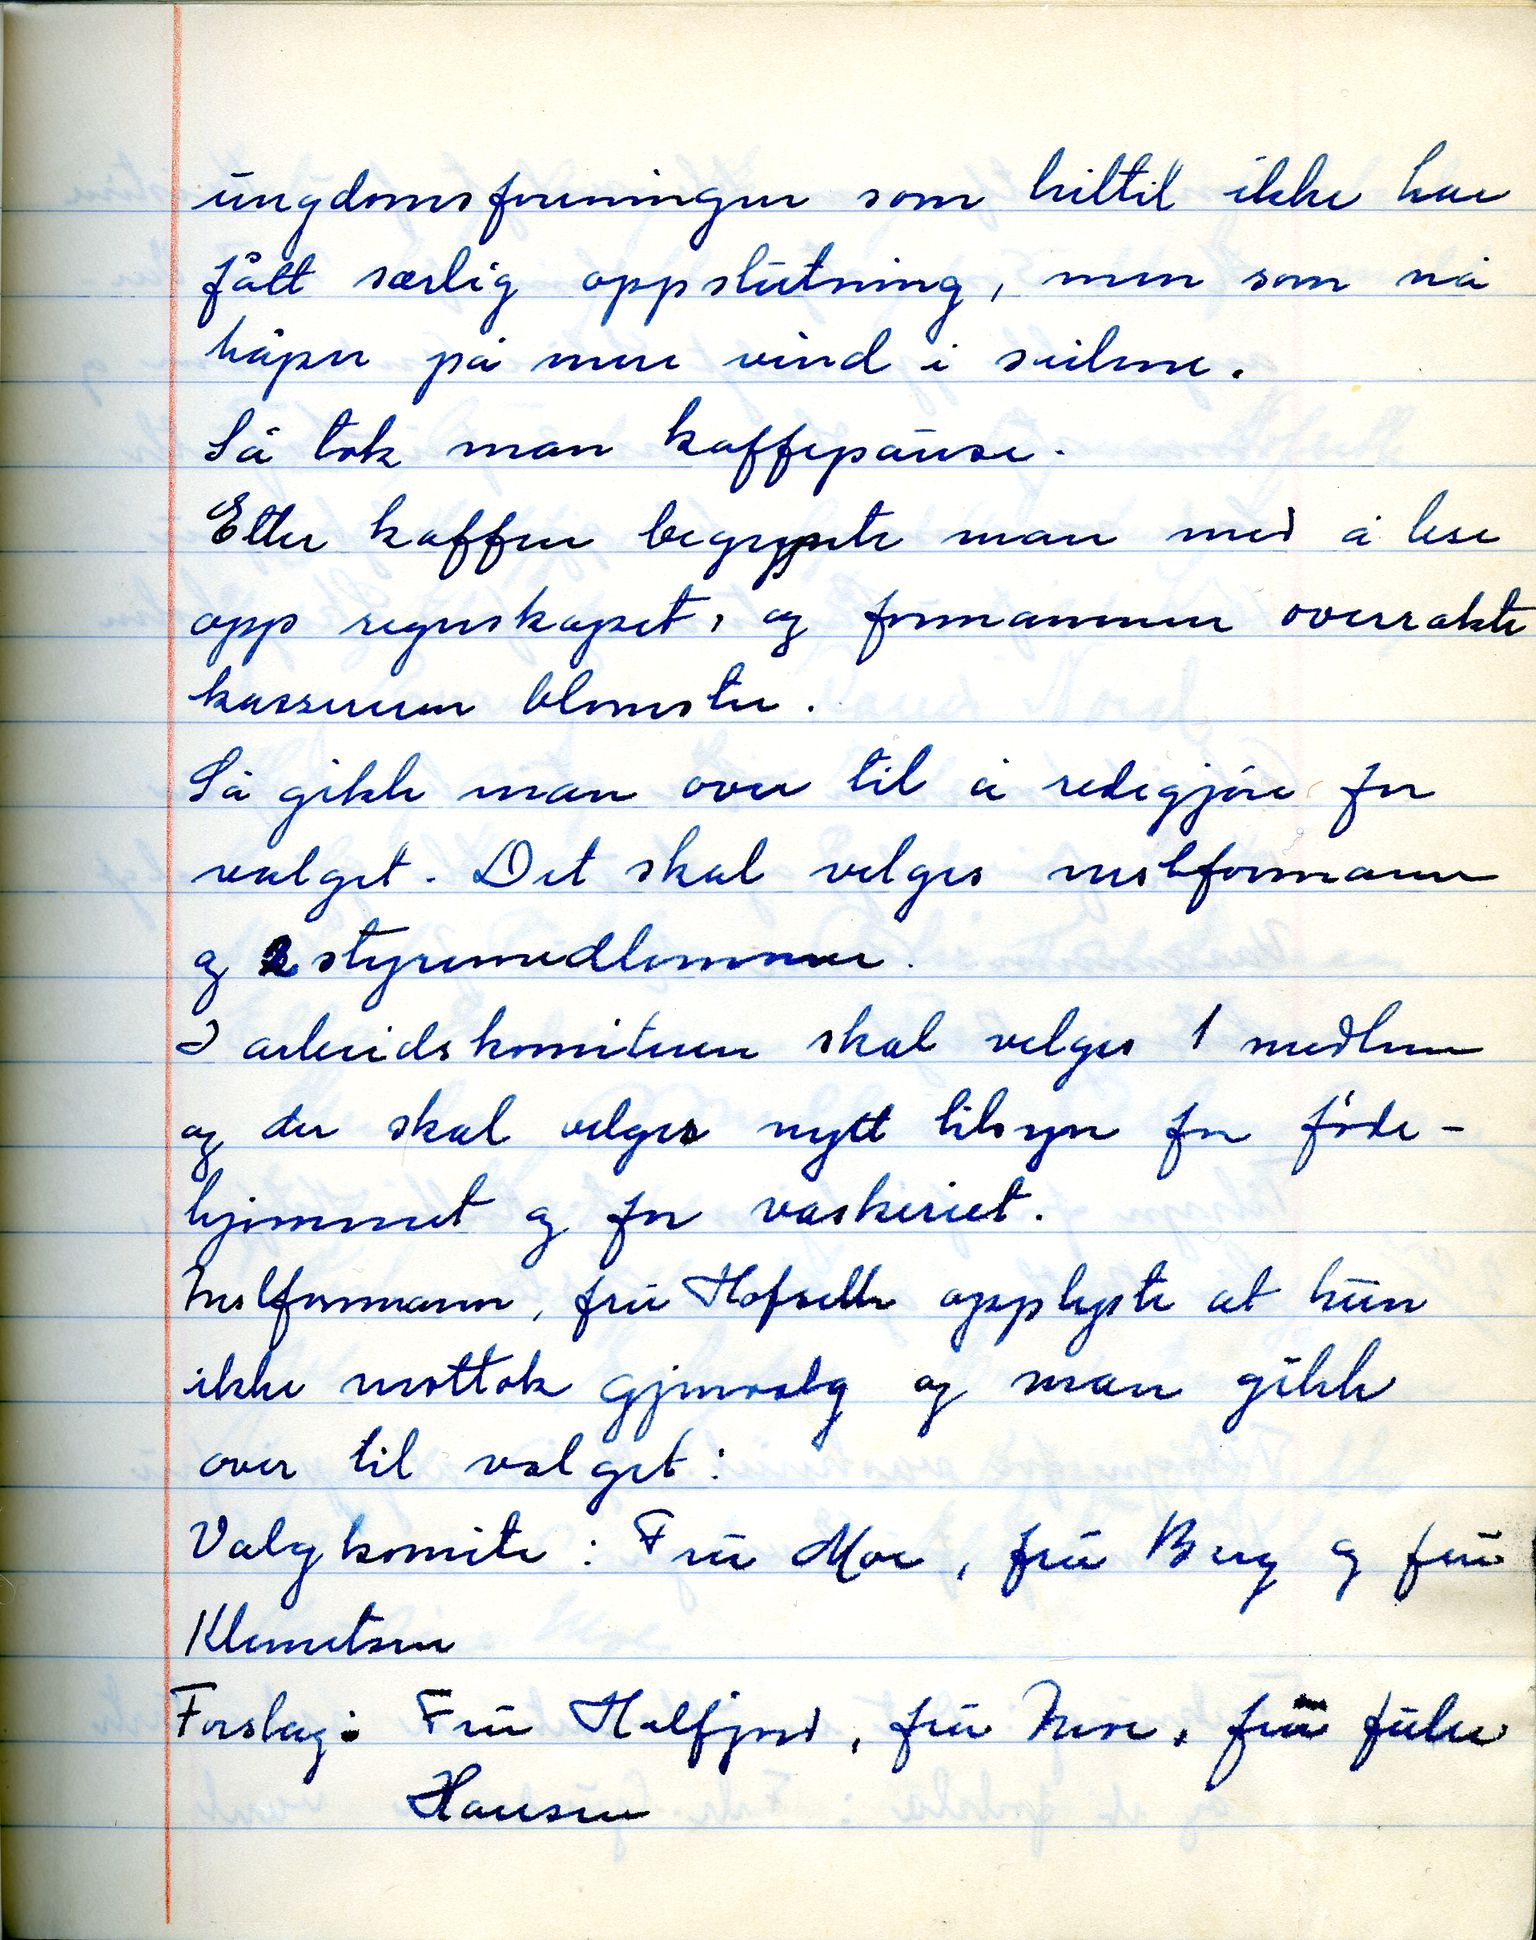 ungdomsforeningen som hittil ikke har
fått særlig oppslutning, men som nå
håper på mere vind i seilene.
Så tok man kaffepause.
Etter kaffen begynte man med å lese
opp regnskapet, og formannen overrakte
kassereren blomster.
Så gikk man over til å redegjøre for
valget. Det skal velges nestformann
og 2 styremedlemmer.
I arbeidskomiteen skal velges 1 medlem
og der skal velges nytt tilsyn for føde-
hjemmet og for vaskeriet.
Nestformann, fru Hofseth opplyste at hun
ikke mottok gjenvalg og man gikk
over til valget:
Valgkomite: Fru Moe, fru Berg og fru
Klemetsen
Forslag: Fru Halfjord, fru , fru
Hansen